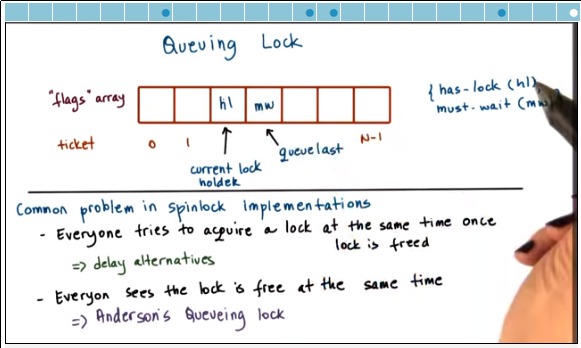 Queuing Lock
"flags" array
hl
mw
{ has-lock (hl),
must-wait (mw)
ticket
0
1
N-1
current lock
holder
queuelast
Common problem in spinlock implementations
- Everyone tries to acquire a lock at the same time once
lock is freed
=> delay alternatives
- Everyon sees the lock is free at the same time
=> Anderson's Queueing lock